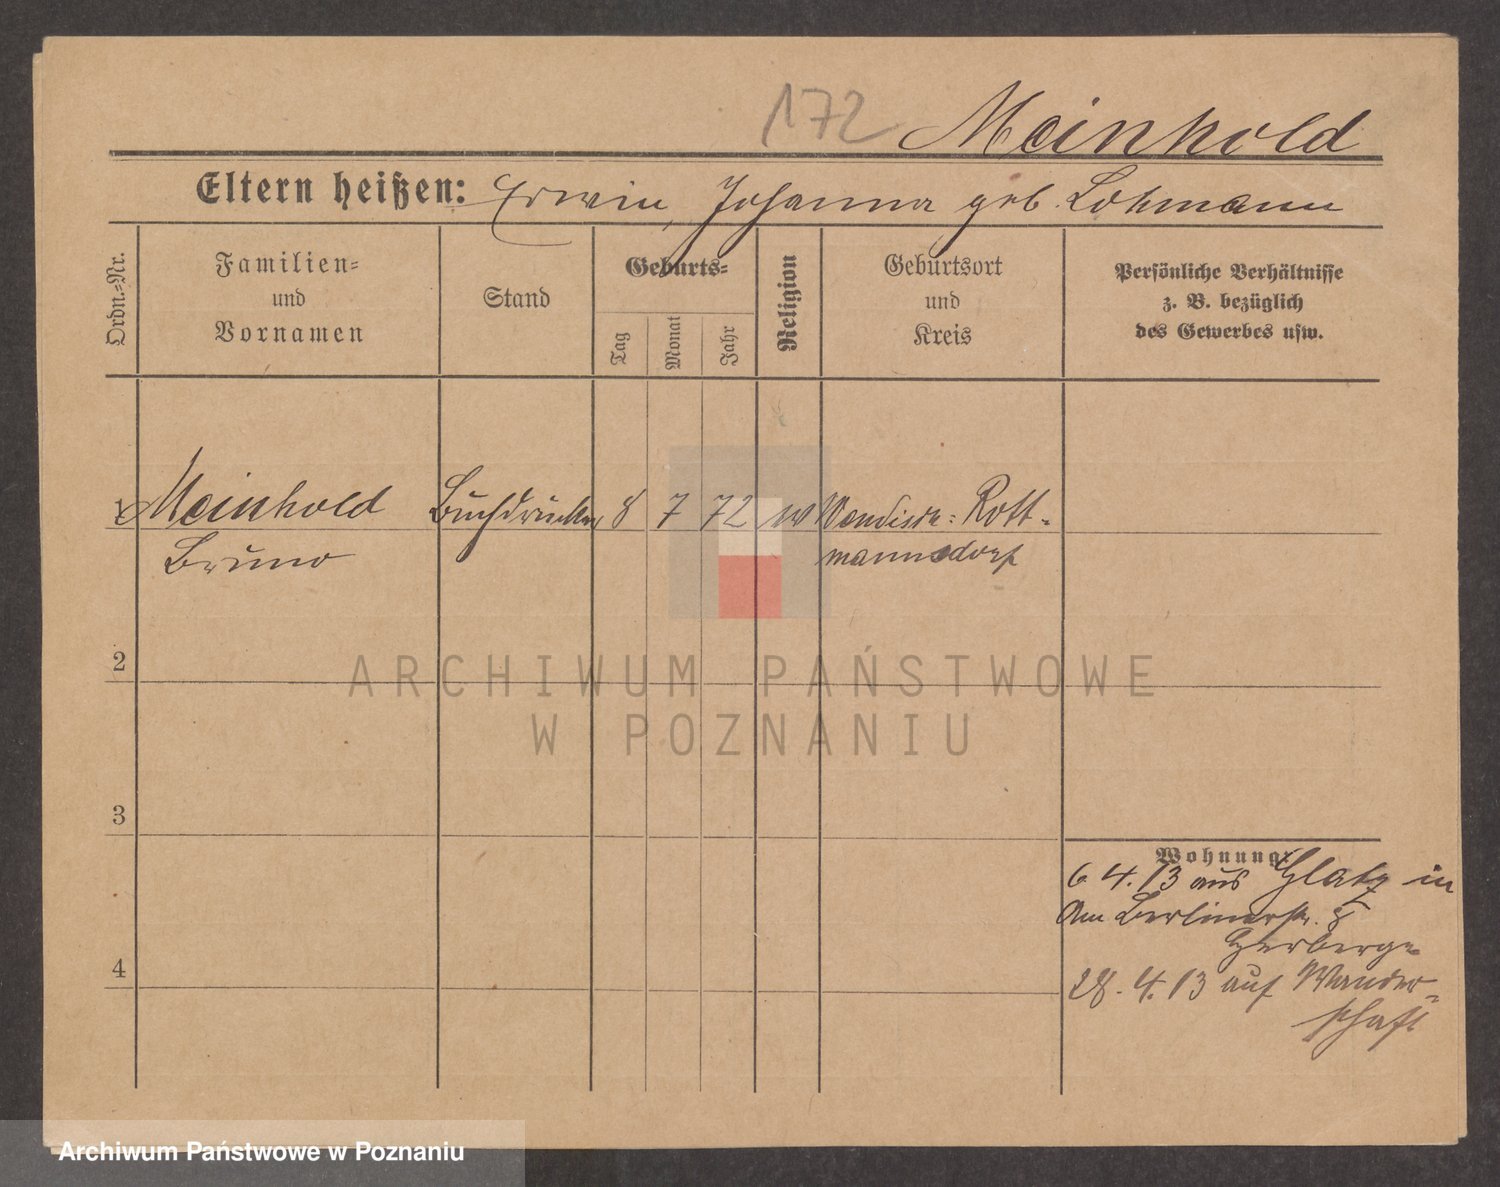 172 Meinhold
Eltern heißen: Erwin, Johanna geb. Lohmann
Ordn.-Nr.
Familien-
und
Vornamen
Stand
Geburts-
Tag
Monat
Jahr
Religion
Geburtsort
und
Kreis
Persönliche Verhältnisse
z. B. bezüglich
des Gewerbes usw.
1 Meinhold Buchdrucker 8 7 72 Wendisch- Rott-
Bruno mannsdorf
2
ARCHIWUM PAŃSTWOWE
W POZNANIU
3
Wohnung:
6 4. 13 aus Glatz in
Am Berlinerstr. 8
Herberge
4
28. 4. 13 auf Wander-
schaft
Archiwum Państwowe w Poznaniu